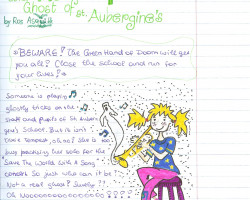 Ghost of St Aubergine's
by Ros Asquith
"BEWARE! The Green Hand of Doom will get
you all! Close the school and run for
your lives!"
Someone is playing
ghostly tricks on the
staff and pupils of St Auberg-
ine's School. But it isn't
Trixie Tempest, oh no! She is too
busy practising her solo for the
Save The World With A Song
concert. So just who can it be?
Not a real ghost? Surely??